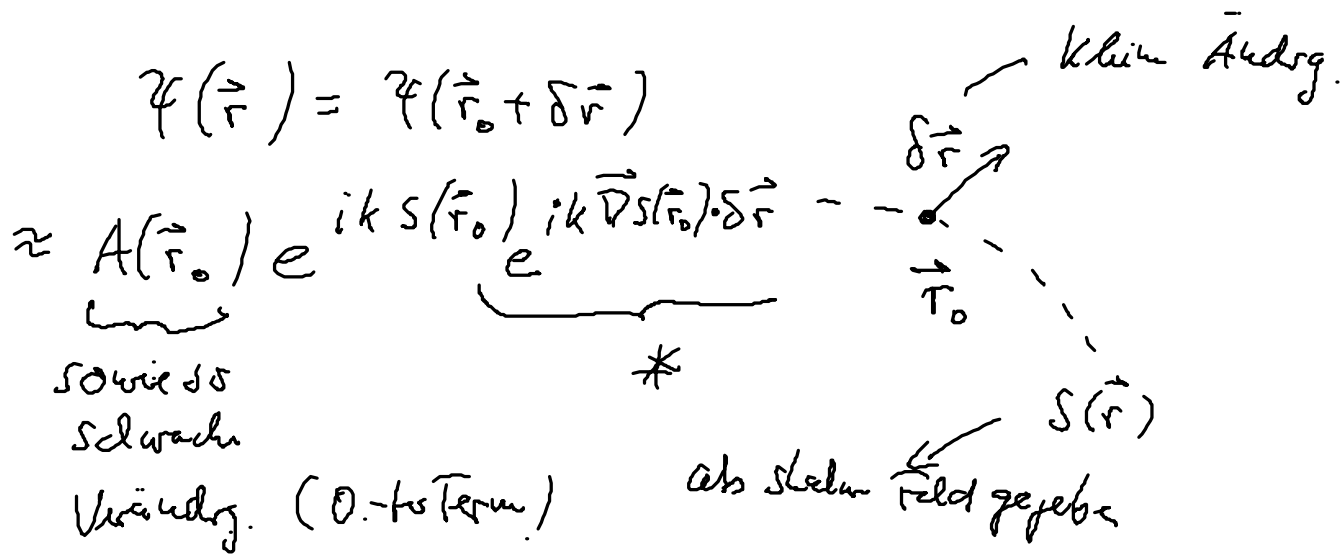 kleine Ändrg.
ψ(r⃗) = ψ(r⃗₀ + δr⃗)
δr⃗
≈ A(r⃗₀) e^{ik S(r⃗₀)} e^{ik ∇⃗S(r⃗₀)·δr⃗}
r⃗₀
*
sowieso
schwache
Verändrg. (0.-ter Term)
S(r⃗)
als skalares Feld gegeben